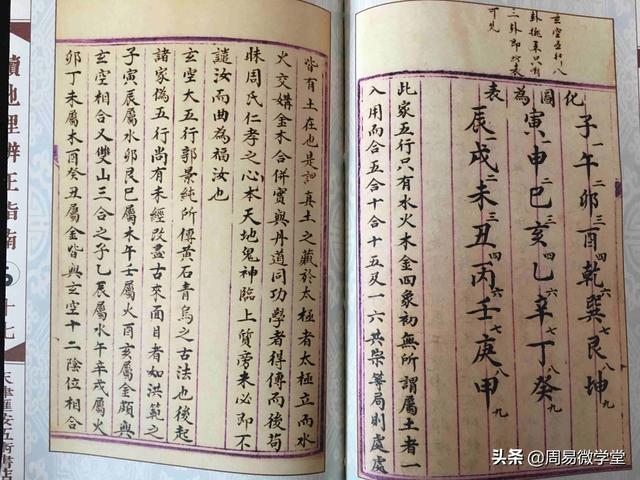 玄空五行八
卦
只有
三卦即
可見
化圖為表
子一午二卯三酉四乾六巽七艮八坤九
寅一申二巳三亥四乙六辛七丁八癸九
辰一戌二未三丑四丙六壬七庚八甲九
此家五行只有水火木金四象初無所謂屬土者一
入用而合五合十合十五又一六共宗等局則處處
皆有土在也是謂真土之藏於太極者太極立而水
火交媾金木合併實與丹道同功學者得傳而後苟
昧周氏仁孝之心本天地鬼神臨上質旁未必即不
譴汝而曲為福汝也
玄空大五行郭景純所傳黃石青烏之古法也後起
諸家偽五行尚有未經改盡古來面目者如洪範之
子寅辰屬水卯艮巳屬木午壬屬火酉亥屬金頗與
玄空相合又雙山三合之子乙辰屬水午辛戌屬火
卯丁未屬木酉癸丑屬金皆與玄空十二陰位相合
地理辨正指南
十七
天津匯安五術書社
头条 @周易微学堂